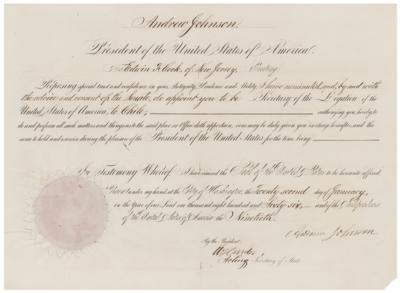 Andrew Johnson.
President of the United States of America.
To Edwin F. Cook, of New Jersey, Greeting:
Reposing special trust and confidence in your Integrity, Prudence and Ability, I have nominated, and by and with
the advice and consent of the Senate, do appoint you to be Secretary of the Legation of the
United States of America, to Chile; authorizing you hereby to
do and perform all such matters and things as to the said place or Office doth appertain, or as may be duly given you in charge hereafter, and the
same to hold and exercise during the pleasure of the President of the United States for the time being.
In Testimony Whereof I have caused the Seal of the United States to be hereunto affixed.
Given under my hand at the City of Washington, the Twenty second day of January,
in the Year of our Lord one thousand eight hundred and Sixty six, and of the Independence
of the United States of America, the Ninetieth.
Andrew Johnson
By the President,
W. Hunter
Acting Secretary of State